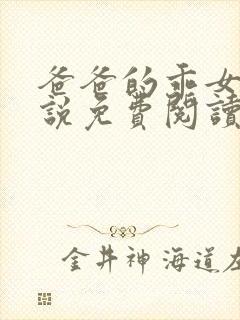 爸爸的乖女
說免費閱讀
金井神 海道左